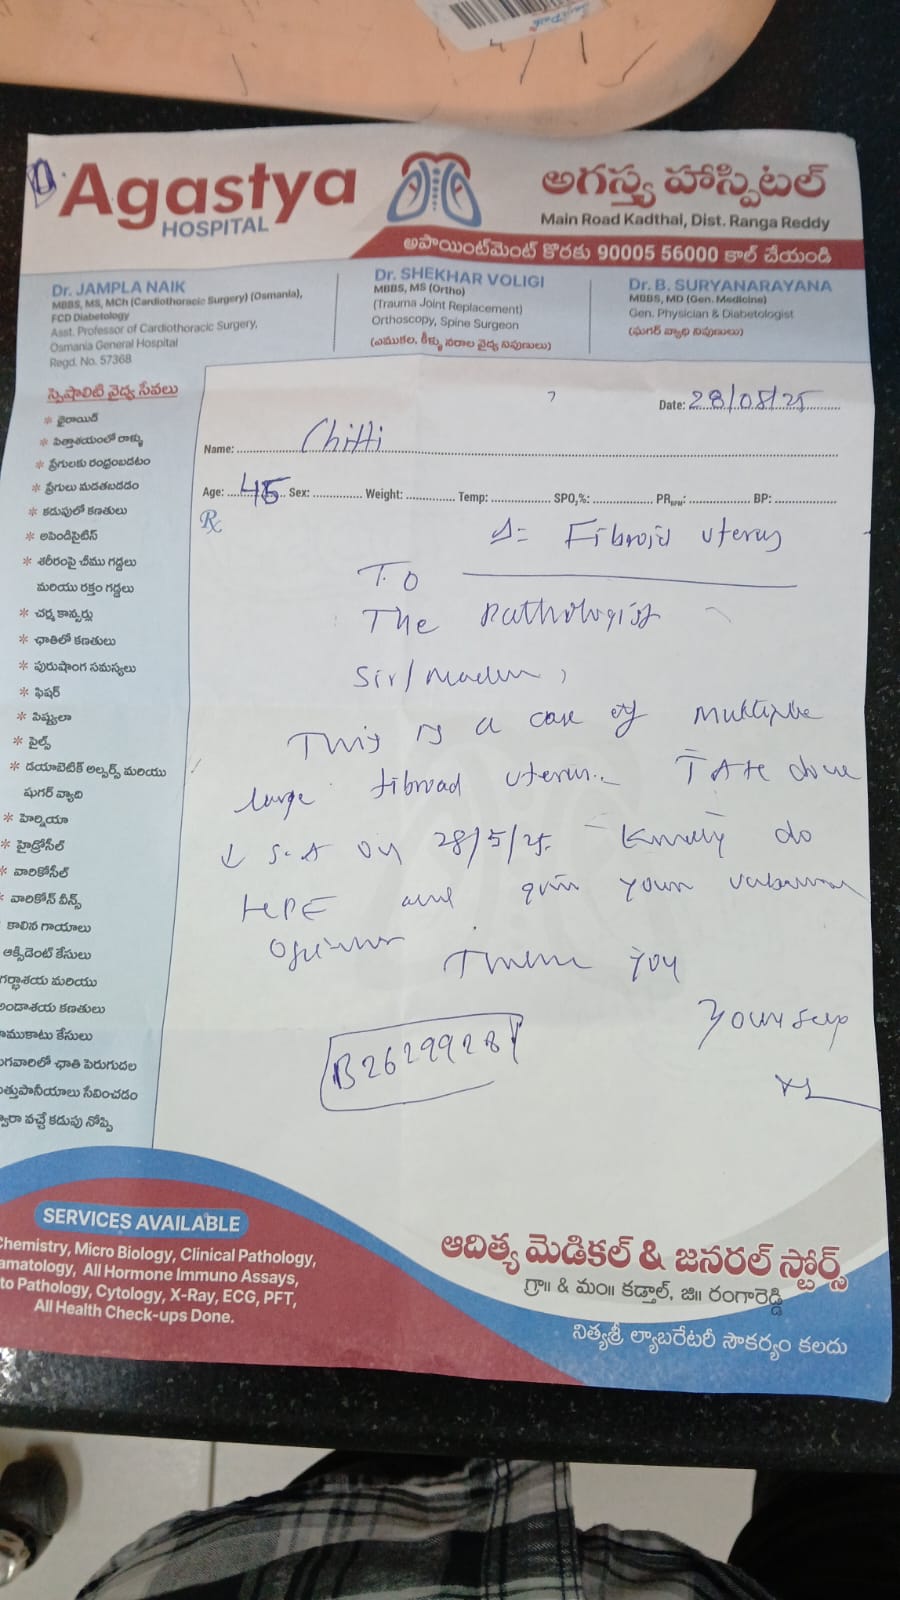 Agastya
HOSPITAL
అగస్త్య హాస్పిటల్
Main Road Kadthal, Dist. Ranga Reddy
అపాయింట్‌మెంట్ కొరకు 90005 56000 కాల్ చేయండి
Dr. JAMPLA NAIK
MBBS, MS, MCh (Cardiothoracic Surgery) (Osmania),
FCD Diabetology
Asst. Professor of Cardiothoracic Surgery,
Osmania General Hospital
Regd. No. 57368
Dr. SHEKHAR VOLIGI
MBBS, MS (Ortho)
(Trauma Joint Replacement)
Orthoscopy, Spine Surgeon
(ఎముకల, కీళ్ళు నరాల వైద్య నిపుణులు)
Dr. B. SURYANARAYANA
MBBS, MD (Gen. Medicine)
Gen. Physician & Diabetologist
(షుగర్ వ్యాధి నిపుణులు)
స్పెషాలిటి వైద్య సేవలు
* థైరాయిడ్
* పిత్తాశయంలో రాళ్ళు
* ప్రేగులకు రంధ్రంబడటం
* ప్రేగులు మడతబడడం
* కడుపులో కణతులు
* అపెండిసైటిస్
* శరీరంపై చీము గడ్డలు
మరియు రక్తం గడ్డలు
* చర్మ కాన్సర్లు
* ఛాతిలో కణతులు
* పురుషాంగ సమస్యలు
* ఫిషర్
* పిష్టులా
* పైల్స్
* డయాబెటిక్ అల్సర్స్ మరియు
షుగర్ వ్యాధి
* హెర్నియా
* హైడ్రోసీల్
* వారికోసీల్
* వారికోస్ వీన్స్
కాలిన గాయాలు
ఆక్సిడెంట్ కేసులు
గర్భాశయ మరియు
అండాశయ కణతులు
పాముకాటు కేసులు
మగవారిలో ఛాతి పెరుగుదల
మత్తుపానీయాలు సేవించడం
ద్వారా వచ్చే కడుపు నోప్పి
Date: 28/08/25
Name: Chitti
Age: 45 Sex: Weight: Temp: SPO₂%: PR BPM: BP:
Rx
Δ= Fibroid uterus
To
The Pathologist
Sir/Madam,
This is a case of multiple
large fibroid uterus. TAH done
↓ S.A on 28/5/25. Kindly do
HPE and give your valuable
opinion Thank you
Yours
B2629928
SERVICES AVAILABLE
Chemistry, Micro Biology, Clinical Pathology,
amatology, All Hormone Immuno Assays,
to Pathology, Cytology, X-Ray, ECG, PFT,
All Health Check-ups Done.
ఆదిత్య మెడికల్ & జనరల్ స్టోర్స్
గ్రా॥ & మం॥ కడ్తాల్, జి॥ రంగారెడ్డి
నిత్యశ్రీ ల్యాబరేటరీ సౌకర్యం కలదు